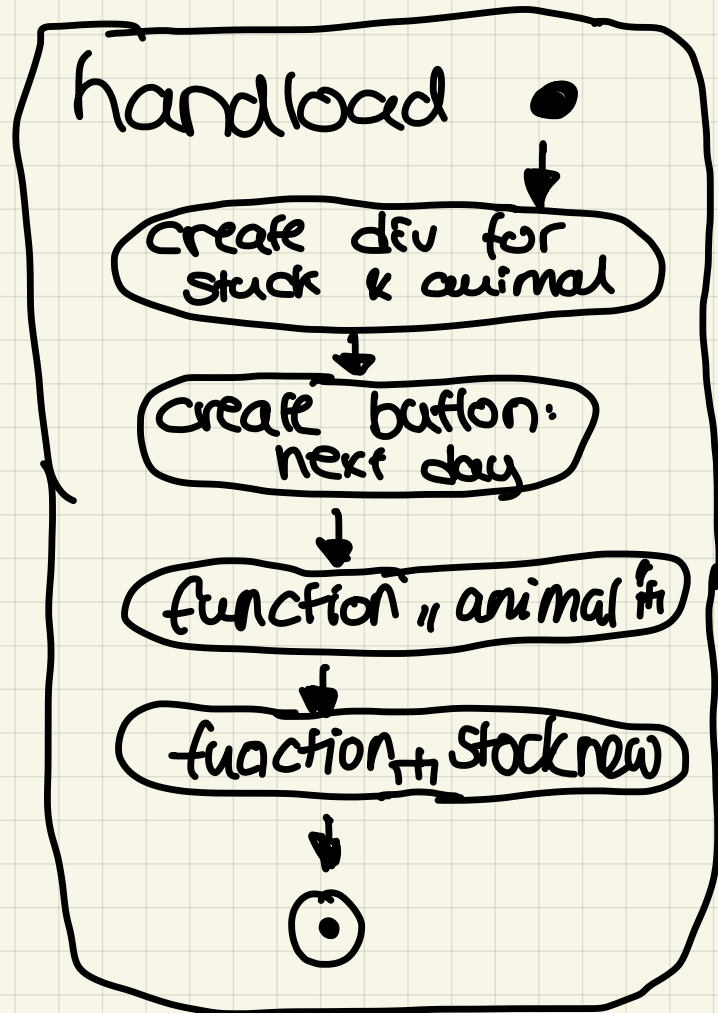 handload
create div for
stuck & animal
create button:
next day
function „ animal
function stocknew